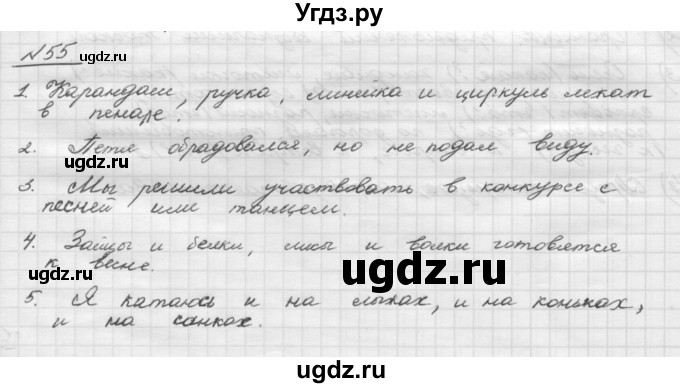 Угдз.ру
№55
1. Карандаш, ручка, линейка и циркуль лежат
в пенаре.
2. Петя обрадовался, но не подал виду.
3. Мы решили участвовать в конкурсе с
песней или танцем.
4. Зайцы и белки, лисы и волки готовятся
к весне.
5. Я катаюсь и на лыжах, и на коньках,
и на санках.
ugdz.ru
ugdz.ru
ugdz.ru
ugdz.ru
ugdz.ru
ugdz.ru
ugdz.ru
ugdz.ru